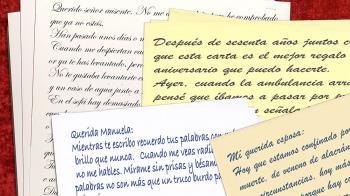 Querido señor ausente. No me
que ya no estás.
Han pasado unos días o
Cuando me despiertan
or ya te has levantado, per
No te gustaba levantarte
y un vaso de agua junto a
En el sofá hay demasiado
Después de sesenta años juntos
que esta carta es el mejor regalo
aniversario que puedo hacerte.
Ayer, cuando la ambulancia
pensé que íbamos a pasar por
señala
Querida Manuela:
Mientras te escribo recuerdo tus palabras con
brillo que nunca. Cuando me veas
no me hables. Mírame sin prisas y
palabras no son más que un truco burdo
Mi querida esposa:
Hoy que estamos confinados
muerte, de veneno de alacrán
circunstancias, hoy más